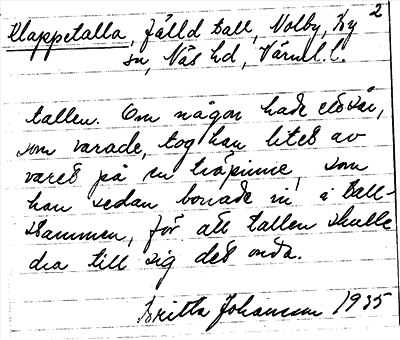 2
Klappetalla, fälld tall, Nolby, Ky
sn, Näs hd, Värml. l.
tallen. Om någon hade ett sår,
som varade, tog han litet av
varet på en träpinne, som
han sedan borrade in i tall-
stammen, för att tallen skulle
dra till sig det onda.
Britta Johansson 1935